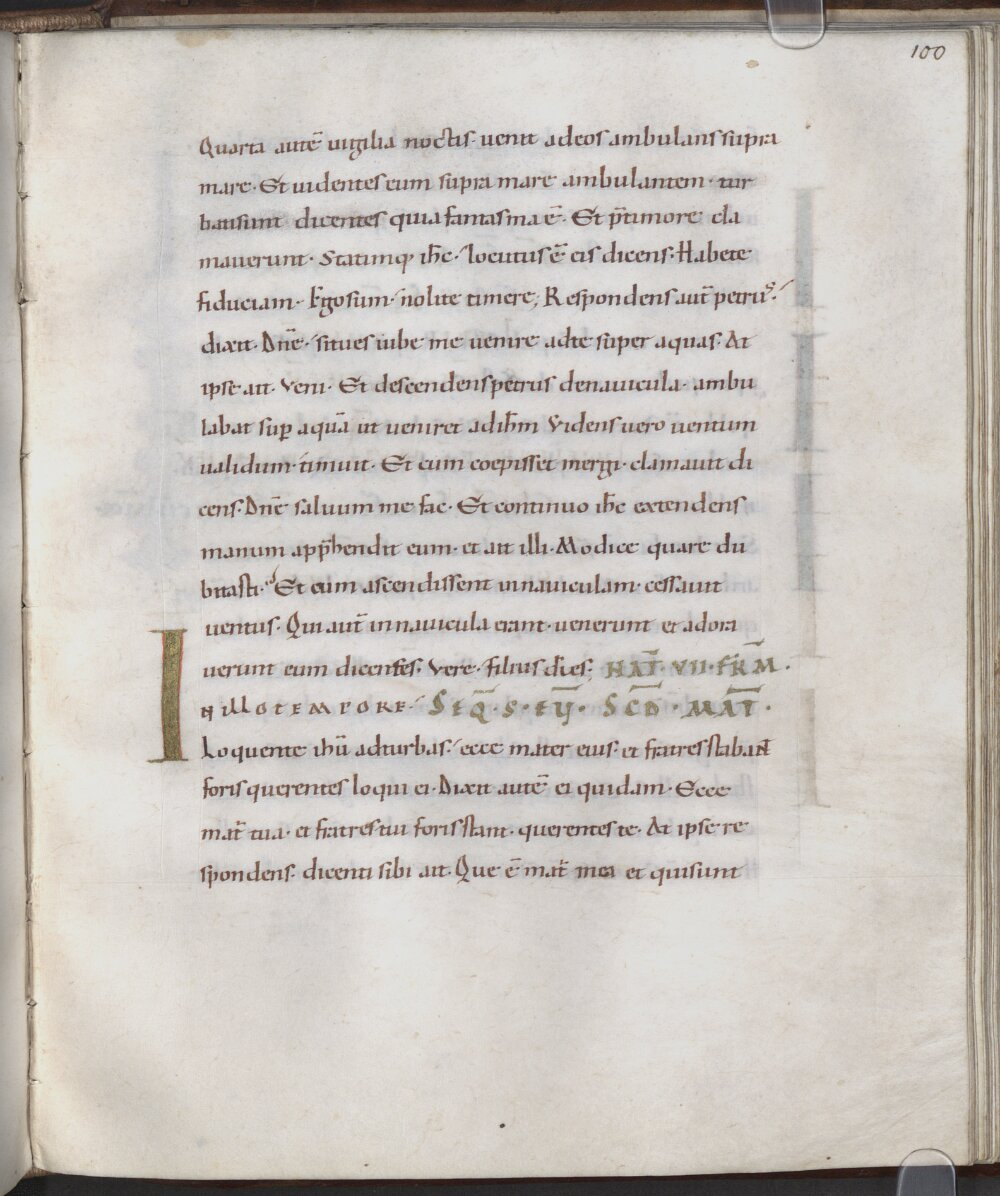 100
Quarta autē uigilia noctis· uenit adeos ambulans supra
mare· Et uidentes eum supra mare ambulantem· tur
bati sunt dicentes quia fantasma ē· Et p̄timore cla
mauerunt· Statimq; ih̄c· locutus ē eis dicens· Habete
fiduciam· Ego sum· nolite timere; Respondens aut̄ petrus·
dixit· Dn̄e· si tu es iube me uenire adte super aquas· At
ipse ait· Veni· Et descendens petrus denauicula· ambu
labat suꝑ aquā ut ueniret ad ih̄m Videns uero uentum
ualidum· timuit· Et cum coepisset mergi· clamauit di
cens· Dn̄e saluum me fac· Et continuo ih̄c extendens
manum app̄hendit eum· et ait illi· Modice quare du
bitasti· Et cum ascendissent innauiculam· cessauit
uentus· Qui aut̄ innauicula erant· uenerunt et adora
uerunt eum dicentes· Vere· filius di es; NAT̄· VII· FR̄M·
IN illo TEMPORE· SEQ̄· S· EV̄· SCD̄· MAT̄·
Loquente ih̄u adturbas· ecce mater eius· et fratres stabant
foris querentes loqui ei· Dixit autē ei quidam· Ecce
mat̄ tua· et fratres tui foris stant· querentes te· At ipse re
spondens· dicenti sibi ait· Que ē mat̄ mea et qui sunt